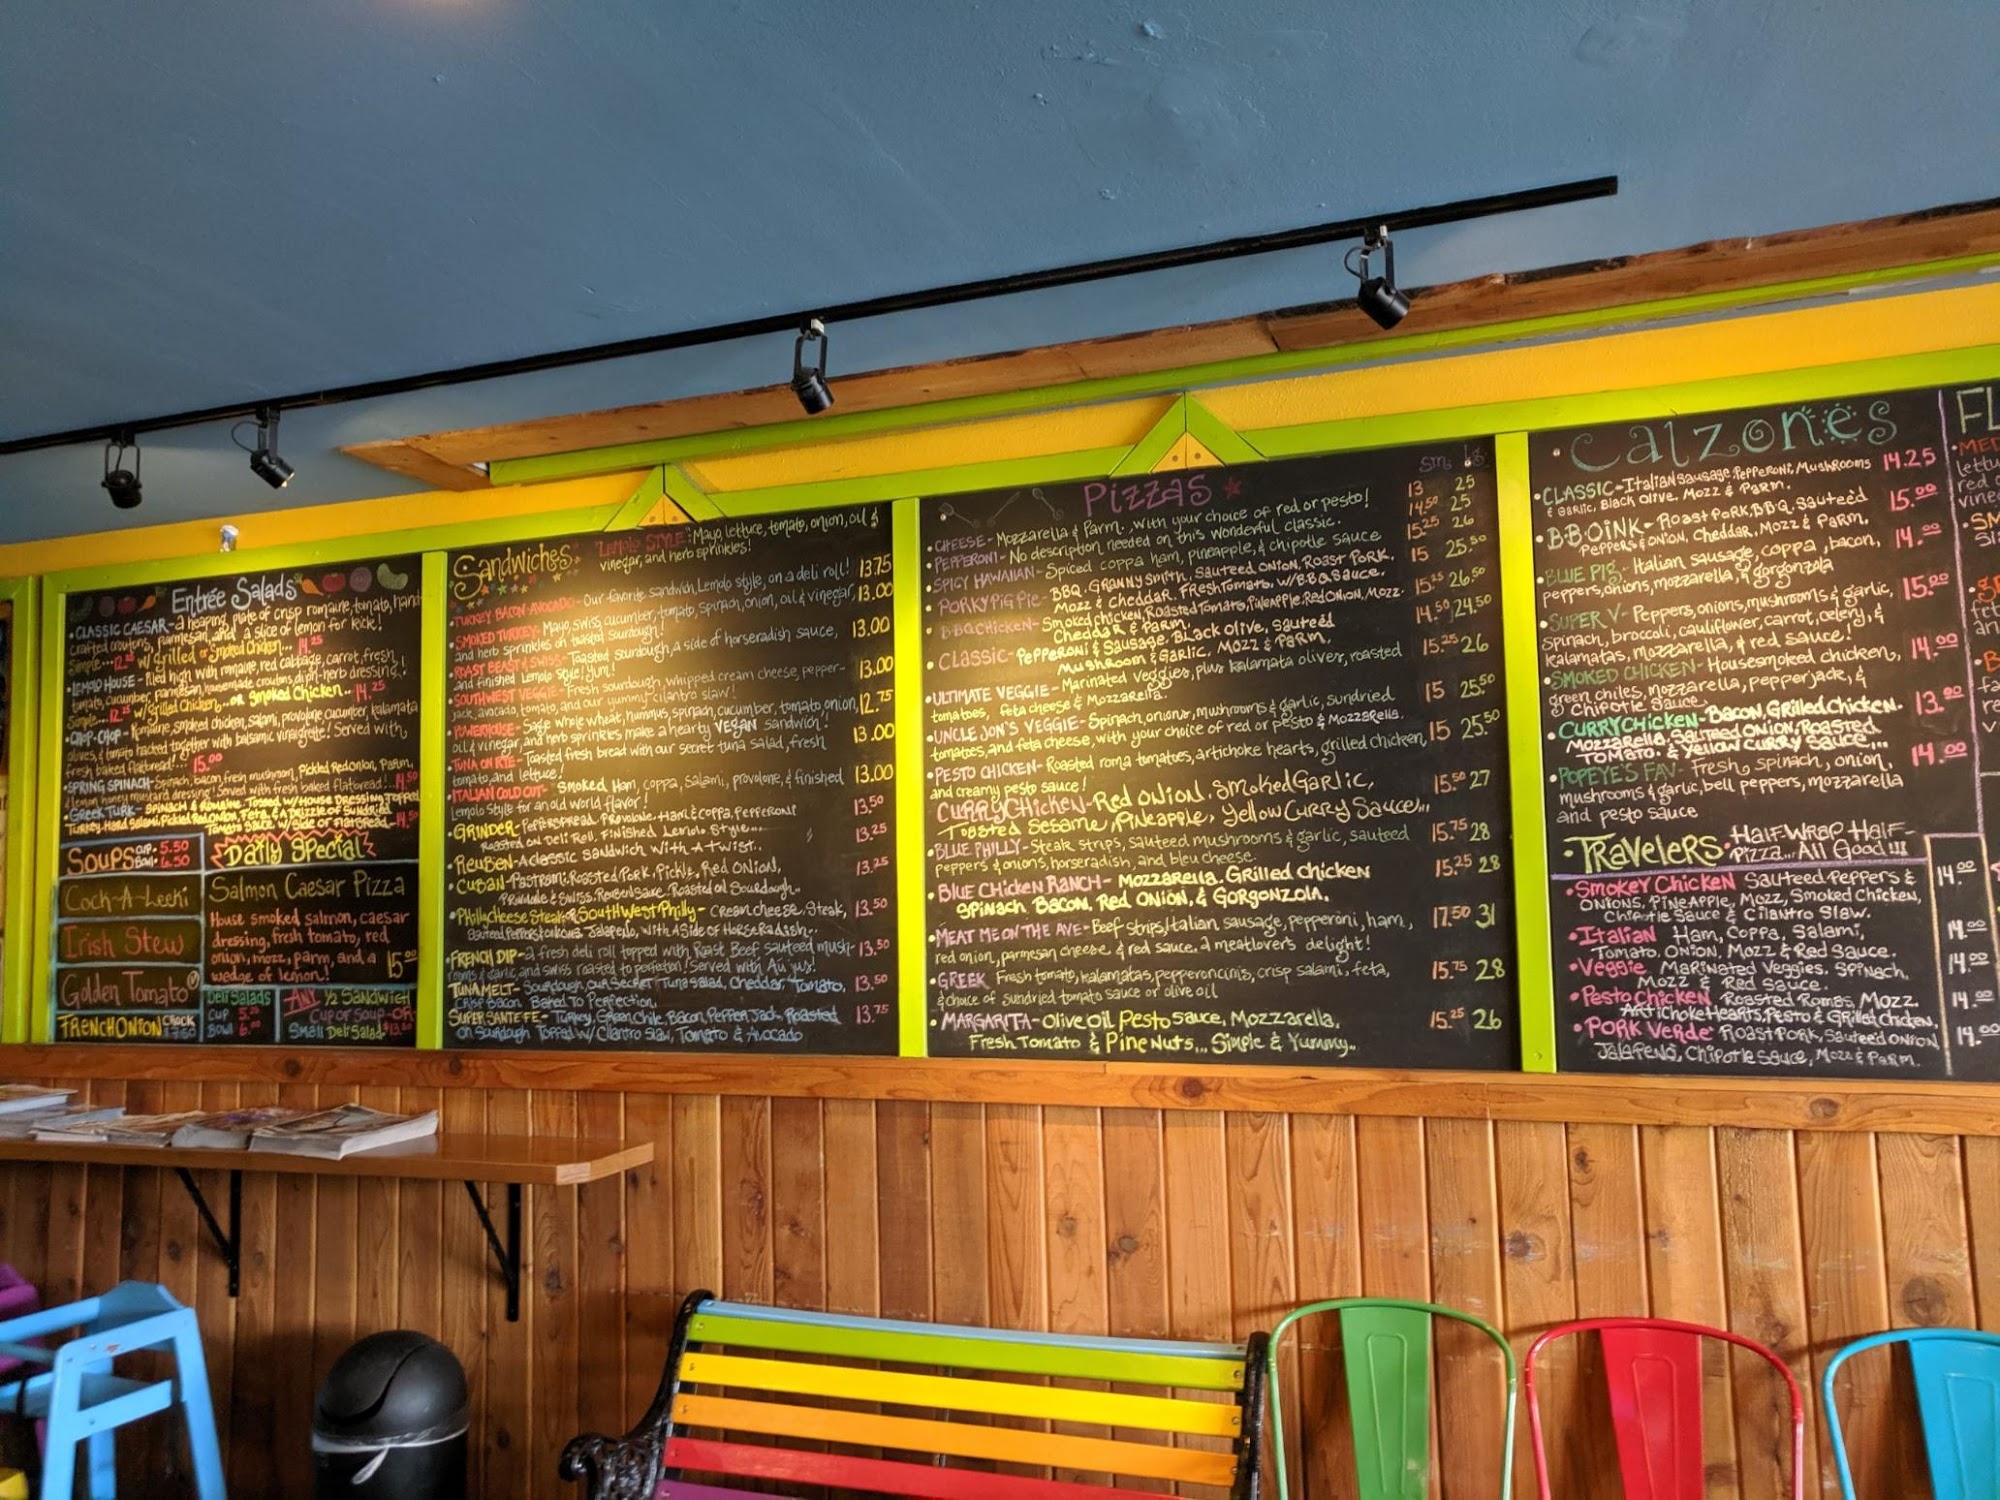 Entrée Salads
• CLASSIC CAESAR - a heaping plate of crisp romaine, tomato, hand-
crafted croutons, parmesan, and a slice of lemon for kick!
Simple... 12.25 w/ Grilled or Smoked Chicken... 14.25
• LEMOLO HOUSE - Piled high with romaine, red cabbage, carrot, fresh
tomato, cucumber, parmesan, homemade croutons, dijon-herb dressing!
Simple... 12.25 w/grilled Chicken... or Smoked Chicken... 14.25
• CHOP-CHOP - Romaine, smoked chicken, salami, provolone, cucumber, kalamata
olives, & tomato hacked together with balsamic vinaigrette! Served with
fresh baked flatbread...! 15.00
• SPRING SPINACH - Spinach, bacon, fresh mushroom, Pickled Red onion, Parm,
& lemon honey mustard dressing! Served with fresh baked flatbread...! 14.50
• GREEK TURK - Spinach & Romaine. Tossed w/House Dressing, Topped
Turkey, Hard Salami, Pickled Red Onion, Feta, & A Drizzle of Sundried
Tomato Sauce w/ Side of Flatbread. 14.50
SOUPS CUP • 5.50
BOWL • 6.50
Cock-A-Leeki
Irish Stew
Golden Tomato
FRENCH ONION CROCK
7.50
Daily Special
Salmon Caesar Pizza
House smoked salmon, caesar
dressing, fresh tomato, red
onion, mozz, parm, and a
wedge of lemon! 15.00
Deli Salads
CUP 5.25
BOWL 6.00
ANY ½ SANDWICH
CUP of SOUP -OR-
Small Deli Salad
Sandwiches
"LEMOLO STYLE": Mayo, lettuce, tomato, onion, oil &
vinegar, and herb sprinkles!
• TURKEY BACON AVOCADO - Our favorite sandwich, Lemolo style, on a deli roll! 13.75
• SMOKED TURKEY - Mayo, swiss, cucumber, tomato, spinach, onion, oil & vinegar, 13.00
and herb sprinkles on toasted sourdough!
• ROAST BEEF & SWISS - Toasted sourdough, a side of horseradish sauce, 13.00
and finished Lemolo style! Yum!
• SOUTHWEST VEGGIE - Fresh sourdough, whipped cream cheese, pepper- 13.00
jack, avocado, tomato, and our yummy cilantro slaw!
• POWERHOUSE - Sage whole wheat, hummus, spinach, cucumber, tomato, onion, 12.75
oil & vinegar, and herb sprinkles make a hearty VEGAN sandwich!
• TUNA ON RYE - Toasted fresh bread with our secret tuna salad, fresh 13.00
tomato, and lettuce!
• ITALIAN COLD CUT - Smoked Ham, coppa, salami, provolone, & finished 13.00
Lemolo Style for an old world flavor!
• GRINDER - Pepperspread, Provolone, Ham & Coppa, Pepperoni 13.50
Roasted on Deli Roll, Finished Lemolo Style...
• REUBEN - A classic sandwich with a twist.. 13.25
• CUBAN - Pastrami, Roasted Pork, Pickle, Red Onion, 13.25
Provolone & Swiss, Reuben Sauce. Roasted on Sourdough..
• Philly Cheese Steak or SouthWest Philly - Cream Cheese. Steak, 13.50
Sauteed Peppers & onions or Jalapeño, with A Side of Horseradish..
• FRENCH DIP - a fresh deli roll topped with Roast Beef sauteed mush- 13.50
rooms & garlic and swiss roasted to perfection! Served with Au jus!
• TUNA MELT - Sourdough, our Secret Tuna Salad, Cheddar, Tomato, 13.50
Crisp Bacon. Baked To Perfection.
• SUPER SANTE FE - Turkey, Green Chile, Bacon, Pepper Jack - Roasted 13.75
on Sourdough Topped w/ Cilantro Slaw, Tomato & Avocado
PIZZAS
sm. lg.
• CHEESE - Mozzarella & Parm., with your choice of red or pesto! 13 25
• PEPPERONI - No description needed on this wonderful classic. 14.50 25
• SPICY HAWAIIAN - Spiced coppa ham, pineapple, & chipotle sauce 15.25 26
• PORKY PIG PIE - BBQ. Granny Smith, Sauteed Onion, Roast Pork, 15 25.50
Mozz & Cheddar. Fresh Tomato. w/BBQ Sauce.
• B-BQ CHICKEN - Smoked chicken, Roasted Tomato, Pineapple, Red Onion, Mozz. 15.25 26.50
Cheddar & Parm.
• CLASSIC - Pepperoni & Sausage, Black Olive, Sauteéd 14.50 24.50
Mushroom & Garlic, Mozz & Parm,
• ULTIMATE VEGGIE - Marinated Veggies, plus kalamata olives, roasted 15.25 26
tomatoes, feta cheese & Mozzarella.
• UNCLE JON'S VEGGIE - Spinach, onions, mushrooms & garlic, sundried 15 25.50
tomatoes, and feta cheese, with your choice of red or pesto & Mozzarella.
• PESTO CHICKEN - Roasted roma tomatoes, artichoke hearts, grilled chicken, 15 25.50
and creamy pesto sauce!
• CURRY CHICKEN - Red Onion, Smoked Garlic, 15.50 27
Toasted Sesame, Pineapple, Yellow Curry Sauce...
• BLUE PHILLY - Steak strips, sauteed mushrooms & garlic, sauteed 15.75 28
peppers & onions, horseradish, and bleu cheese.
• BLUE CHICKEN RANCH - Mozzarella, Grilled Chicken 15.25 28
Spinach, Bacon, Red Onion, & Gorgonzola.
• MEAT ME ON THE AVE - Beef strips, Italian sausage, pepperoni, ham, 17.50 31
red onion, parmesan cheese & red sauce. a meatlover's delight!
• GREEK Fresh tomato, kalamatas, pepperoncinis, crisp salami, feta, 15.75 28
& choice of sundried tomato sauce or olive oil
• MARGARITA - Olive Oil Pesto Sauce, Mozzarella, 15.25 26
Fresh Tomato & Pine Nuts... Simple & Yummy..
Calzones
• CLASSIC - Italian Sausage, Pepperoni, Mushrooms 14.25
& Garlic, Black Olive, Mozz & Parm.
• B-B-OINK - Roast Pork, B.B.Q. Sauteéd 15.00
Peppers & Onion, Cheddar, Mozz & Parm.
• BLUE PIG - Italian sausage, coppa, bacon, 14.00
peppers, onions, mozzarella, & gorgonzola
• SUPER V - Peppers, onions, mushrooms & garlic, 15.00
spinach, broccoli, cauliflower, carrot, celery, &
kalamatas, mozzarella, & red sauce!
• SMOKED CHICKEN - House smoked chicken, 14.00
green chiles, mozzarella, pepperjack, &
Chipotle Sauce
• CURRY CHICKEN - Bacon, Grilled Chicken. 13.00
Mozzarella, Sauteed Onion, Roasted
Tomato & Yellow Curry Sauce...
• POPEYE'S FAV - Fresh spinach, onion, 14.00
mushrooms & garlic, bell peppers, mozzarella
and pesto sauce
• TRAVELERS • Half-Wrap Half-
Pizza... All Good!!!
• Smokey Chicken Sauteed Peppers & 14.00
Onions, Pineapple, Mozz, Smoked Chicken,
Chipotle Sauce & Cilantro Slaw.
• Italian Ham, Coppa, Salami, 14.00
Tomato, Onion, Mozz & Red Sauce.
• Veggie Marinated Veggies, Spinach, 14.00
Mozz & Red Sauce.
• Pesto Chicken Roasted Romas, Mozz. 14.00
Artichoke Hearts, Pesto & Grilled Chicken,
• PORK Verde Roast Pork, Sauteéd Onion 14.00
Jalapeño, Chipotle Sauce, Mozz & Parm.
FL
• MED
lettu
red o
vine
• SM